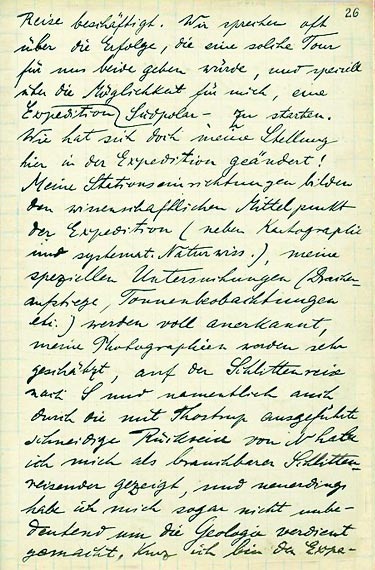 26
Reise beschäftigt. Wir sprechen oft
über die Erfolge, die eine solche Tour
für uns beide geben würde, und speciell
über die Möglichkeit für mich, eine
Expedition Südpolar- zu starten.
Wie hat sich doch meine Stellung
hier in der Expedition geändert!
Meine Stationseinrichtungen bilden
den wissenschaftlichen Mittelpunkt
der Expedition (neben Kartographie
und systemat. Naturwiss.), meine
speziellen Untersuchungen (Drachen-
aufstiege, Tonnenbeobachtungen
etc.) werden voll anerkannt,
meine Photographien werden sehr
geschätzt, auf der Schlittenreise
nach S und namentlich auch
durch die mit Thostrup ausgeführte
schneidige Rückreise von N habe
ich mich als brauchbarer Schlitten-
reisender gezeigt, und neuerdings
habe ich mich sogar nicht unbe-
deutend um die Geologie verdient
gemacht. Kurz ich bin der Expe-